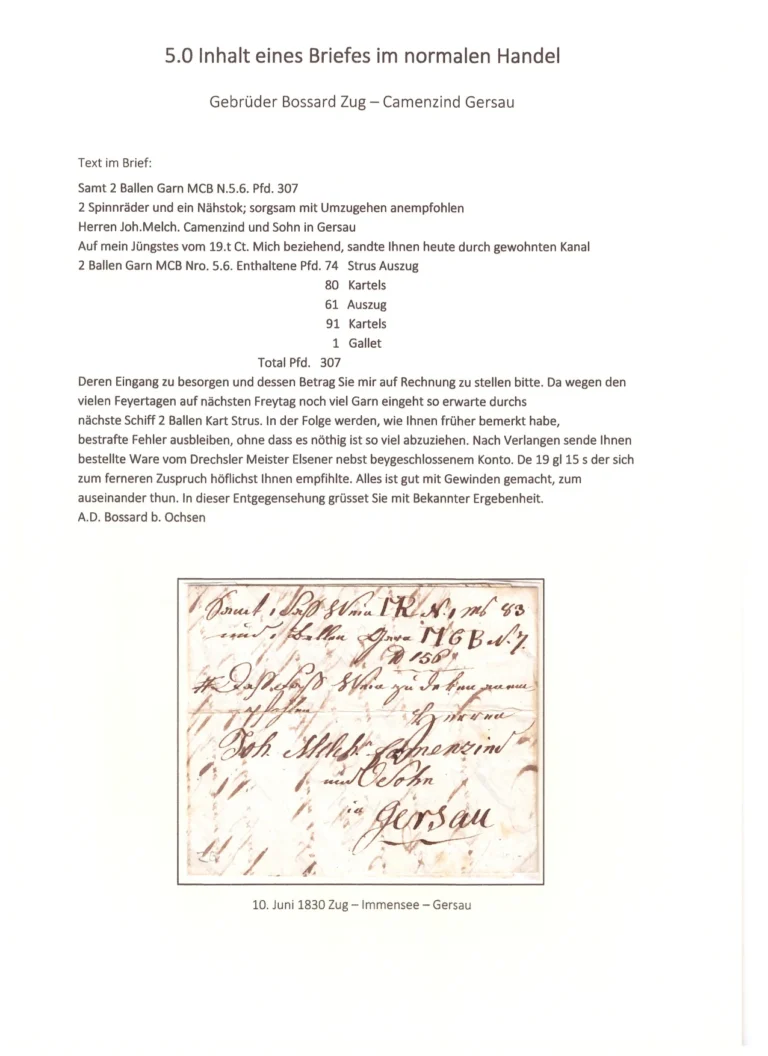 5.0 Inhalt eines Briefes im normalen Handel
Gebrüder Bossard Zug – Camenzind Gersau
Text im Brief:
Samt 2 Ballen Garn MCB N.5.6. Pfd. 307
2 Spinnräder und ein Nähstok; sorgsam mit Umzugehen anempfohlen
Herren Joh.Melch. Camenzind und Sohn in Gersau
Auf mein Jüngstes vom 19.t Ct. Mich beziehend, sandte Ihnen heute durch gewohnten Kanal
2 Ballen Garn MCB Nro. 5.6. Enthaltene Pfd. 74 Strus Auszug
80 Kartels
61 Auszug
91 Kartels
1 Gallet
Total Pfd. 307
Deren Eingang zu besorgen und dessen Betrag Sie mir auf Rechnung zu stellen bitte. Da wegen den
vielen Feyertagen auf nächsten Freytag noch viel Garn eingeht so erwarte durchs
nächste Schiff 2 Ballen Kart Strus. In der Folge werden, wie Ihnen früher bemerkt habe,
bestrafte Fehler ausbleiben, ohne dass es nöthig ist so viel abzuziehen. Nach Verlangen sende Ihnen
bestellte Ware vom Drechsler Meister Elsener nebst beygeschlossenem Konto. De 19 gl 15 s der sich
zum ferneren Zuspruch höflichst Ihnen empfihlte. Alles ist gut mit Gewinden gemacht, zum
auseinander thun. In dieser Entgegensehung grüsset Sie mit Bekannter Ergebenheit.
A.D. Bossard b. Ochsen
Samt 1 N. 1 83
und 1 Ballen Garn MCB N. 7.
156
Herren
Joh. Melch. Camenzind
und Sohn
in Gersau
10. Juni 1830 Zug – Immensee – Gersau